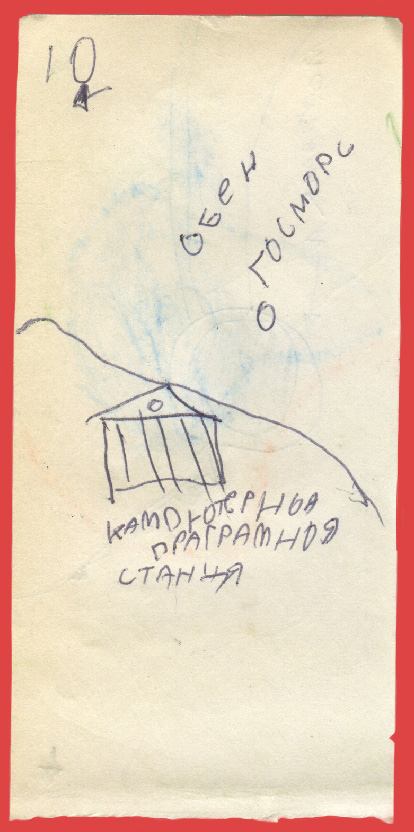 10
ОБЕН
О ГОСМОРС
КАМПЮТЕРНЫА
ПРАГРАМНОЯ
СТАНЦЯ